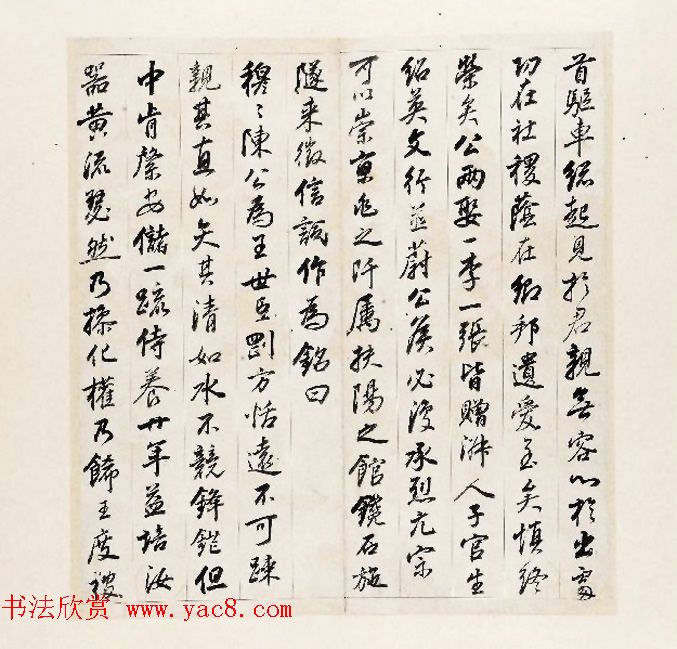 首驅車總起見於君親無容心於出處
功在社稷蔭在鄉邦遺愛至矣慎終
榮矣公兩娶一李一張皆贈淑人子官生
紹英文行並蔚公侯必復承烈亢宗
可以崇玄之阡屬扶陽之館鐫石旌
隧来徵信詞作為銘曰
穆〻陳公為王世臣剛方恬遠不可疎
親其直如矢其清如水不競鋒鋩但
中肯綮安儲一疏侍養廿年益培汝
器黄流瑟然乃操化權乃飾王度謖
书法欣赏 www.yac8.com